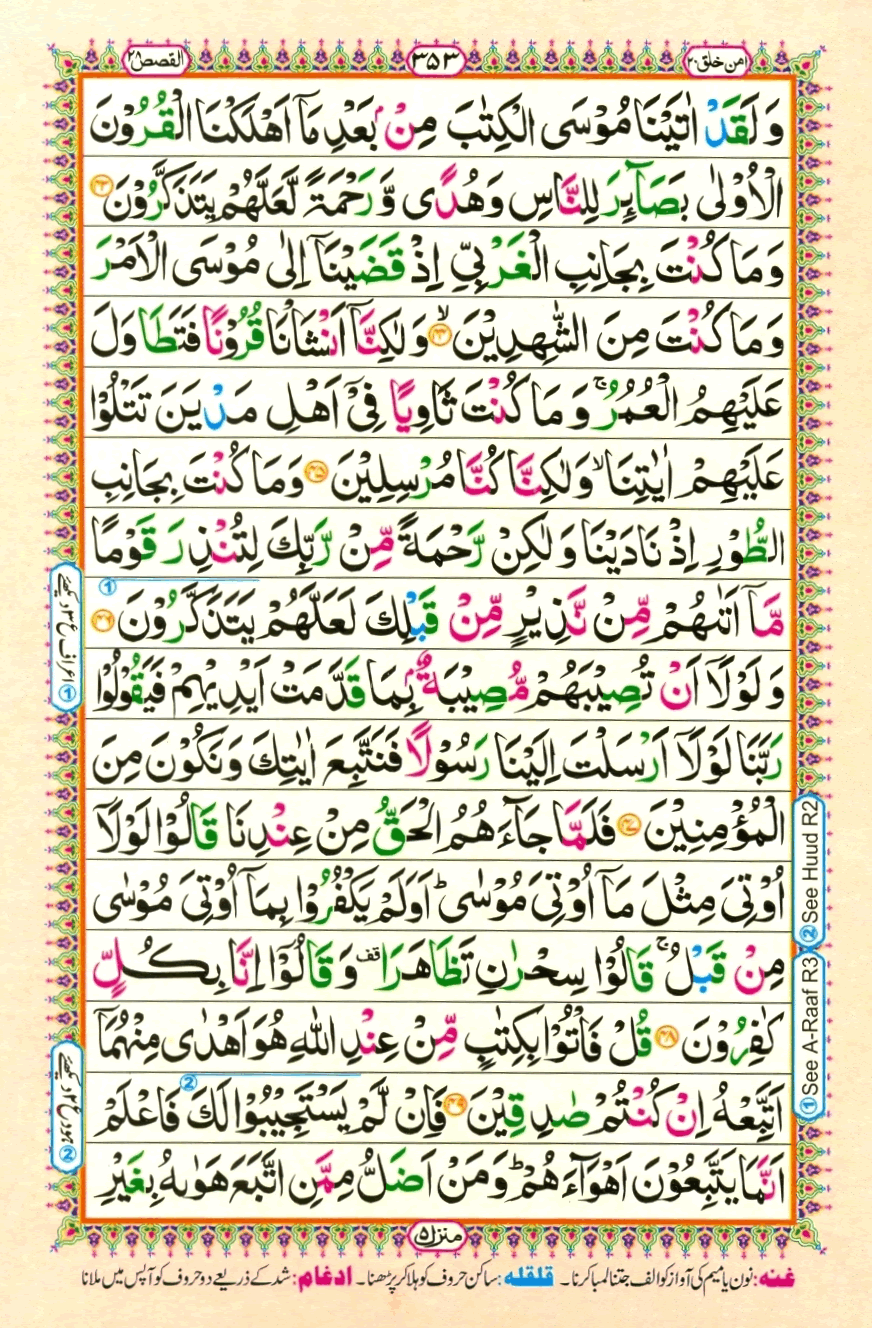 امن خلق ۲۰
۳۵۳
القصص ۲۸
وَلَقَدْ اٰتَيْنَا مُوْسَى الْكِتٰبَ مِنْۢ بَعْدِ مَاۤ اَهْلَكْنَا الْقُرُوْنَ
الْاُوْلٰى بَصَآئِرَ لِلنَّاسِ وَهُدًى وَّرَحْمَةً لَّعَلَّهُمْ يَتَذَكَّرُوْنَ ۴۳
وَمَا كُنْتَ بِجَانِبِ الْغَرْبِيِّ اِذْ قَضَيْنَاۤ اِلٰى مُوْسَى الْاَمْرَ
وَمَا كُنْتَ مِنَ الشّٰهِدِيْنَ ۙ۴۴ وَلٰكِنَّاۤ اَنْشَاْنَا قُرُوْنًا فَتَطَاوَلَ
عَلَيْهِمُ الْعُمُرُ ۚ وَمَا كُنْتَ ثَاوِيًا فِيْۤ اَهْلِ مَدْيَنَ تَتْلُوْا
عَلَيْهِمْ اٰيٰتِنَا ۙ وَلٰكِنَّا كُنَّا مُرْسِلِيْنَ ۴۵ وَمَا كُنْتَ بِجَانِبِ
الطُّوْرِ اِذْ نَادَيْنَا وَلٰكِنْ رَّحْمَةً مِّنْ رَّبِّكَ لِتُنْذِرَ قَوْمًا
مَّاۤ اَتٰىهُمْ مِّنْ نَّذِيْرٍ مِّنْ قَبْلِكَ لَعَلَّهُمْ يَتَذَكَّرُوْنَ ۴۶
وَلَوْلَاۤ اَنْ تُصِيْبَهُمْ مُّصِيْبَةٌۢ بِمَا قَدَّمَتْ اَيْدِيْهِمْ فَيَقُوْلُوْا
رَبَّنَا لَوْلَاۤ اَرْسَلْتَ اِلَيْنَا رَسُوْلًا فَنَتَّبِعَ اٰيٰتِكَ وَنَكُوْنَ مِنَ
الْمُؤْمِنِيْنَ ۴۷ فَلَمَّا جَآءَهُمُ الْحَقُّ مِنْ عِنْدِنَا قَالُوْا لَوْلَاۤ
اُوْتِيَ مِثْلَ مَاۤ اُوْتِيَ مُوْسٰى ؕ اَوَلَمْ يَكْفُرُوْا بِمَاۤ اُوْتِيَ مُوْسٰى
مِنْ قَبْلُ ۚ قَالُوْا سِحْرٰنِ تَظَاهَرَا ۫قف وَقَالُوْۤا اِنَّا بِكُلٍّ
كٰفِرُوْنَ ۴۸ قُلْ فَاْتُوْا بِكِتٰبٍ مِّنْ عِنْدِ اللّٰهِ هُوَ اَهْدٰى مِنْهُمَاۤ
اَتَّبِعْهُ اِنْ كُنْتُمْ صٰدِقِيْنَ ۴۹ فَاِنْ لَّمْ يَسْتَجِيْبُوْا لَكَ فَاعْلَمْ
اَنَّمَا يَتَّبِعُوْنَ اَهْوَآءَهُمْ ؕ وَمَنْ اَضَلُّ مِمَّنِ اتَّبَعَ هَوٰىهُ بِغَيْرِ
① اعراف ع ۳ دیکھئے
② ہود ع ۲ دیکھئے
② See Huud R2
① See A-Raaf R3
منزل ۵
غنه: نون یا میم کی آواز کو الف جتنا لمبا کرنا۔ قلقله: ساکن حروف کو ہلا کر پڑھنا۔ ادغام: شد کے ذریعے دو حروف کو آپس میں ملانا